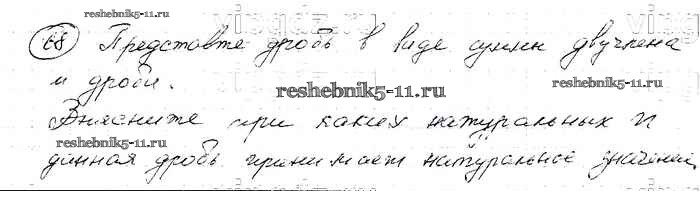 reshebnik5-11.ru
68 Представте дробь в виде сумм двучлена
и дроби.
reshebnik5-11.ru
Выясните при каких натуральных n
reshebnik5-11.ru
данная дробь принимает натуральное значение.
reshebnik5-11.ru